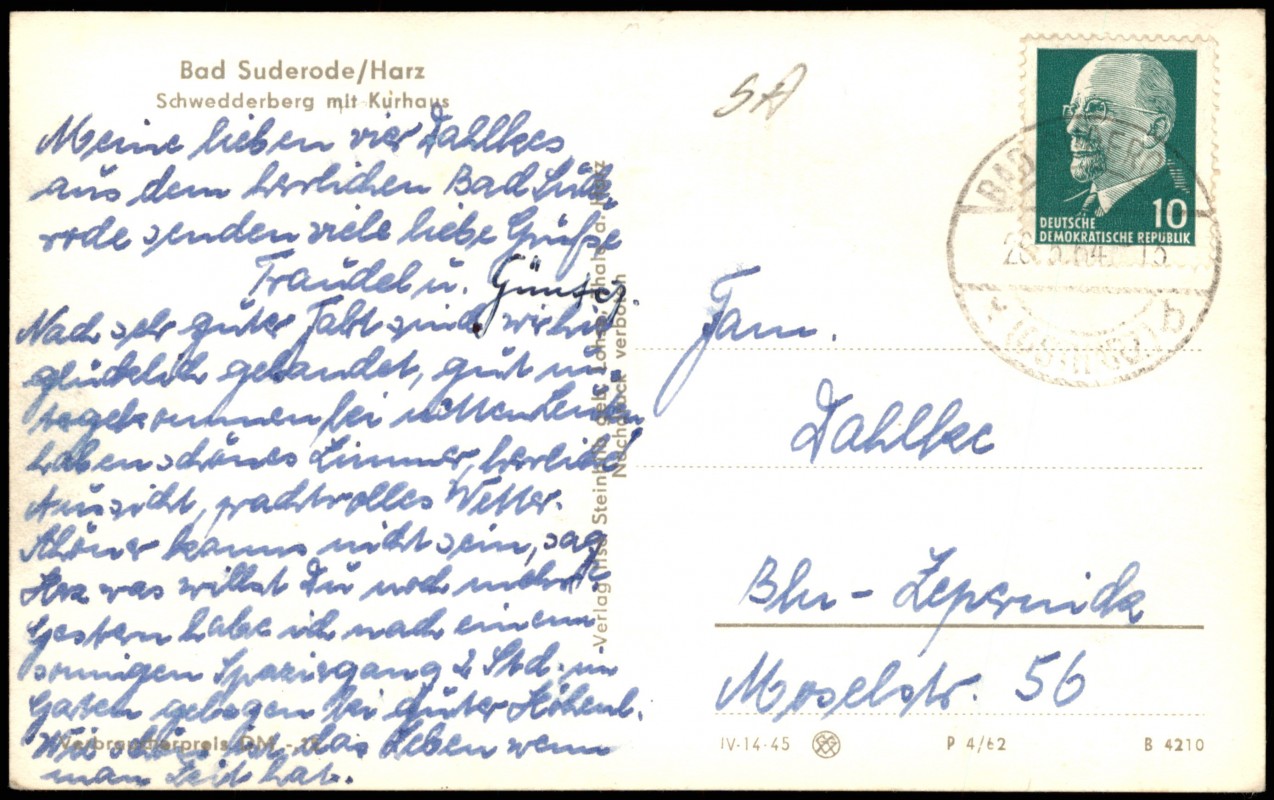 Bad Suderode/Harz
Schwedderberg mit Kurhaus
Meine lieben vier Dahlkes
aus dem herrlichen Bad Sude-
rode senden viele liebe Grüße
Traudel u. Günter.
Nach sehr guter Fahrt sind wir hier
glücklich gelandet, gut un-
tergekommen bei netten Leuten,
haben schönes Zimmer, herrliche
Aussicht, prachtvolles Wetter.
Schöner kanns nicht sein, sag
Herz was willst Du noch mehr?
Gestern habe ich nach einem
sonnigen Spaziergang 2 Std. im
Garten gelegen bei guter Höhenl.
Wie schön ist das Leben wenn
man Zeit hat.
Verbraucherpreis DM -
Verlag Steinheld a. Harz
Nachdruck verboten
SA
DEUTSCHE
DEMOKRATISCHE REPUBLIK
10
BAD SUDERODE
b
Fam.
Dahlke
Bln - Zepernick
Moselstr. 56
IV-14-45
P 4/62
B 4210